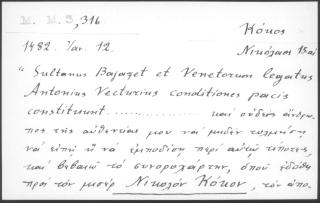 M. M. 3, 316
Κόκος
1482. Ιαν. 12.
Νικόλαος 15αι
"Sultanus Bajazet et Venetorum legatus
Antonius Vecturius conditiones pacis
constituunt.............. καὶ οὐδεὶς ἄνθρω-
πος τῆς αὐθεντείας μου νὰ μηδὲν τολμήσῃ
νὰ εἰπῇ ἢ νὰ ἐμποδίσῃ περὶ αὐτῷ τίποτες
καὶ βεβαιῶ τὸ συνοροχάρτην, ὁποῦ ἐδόθη
πρὸς τὸν μισὲρ Νικολὸν Κόκον, τὸν ἀπο-